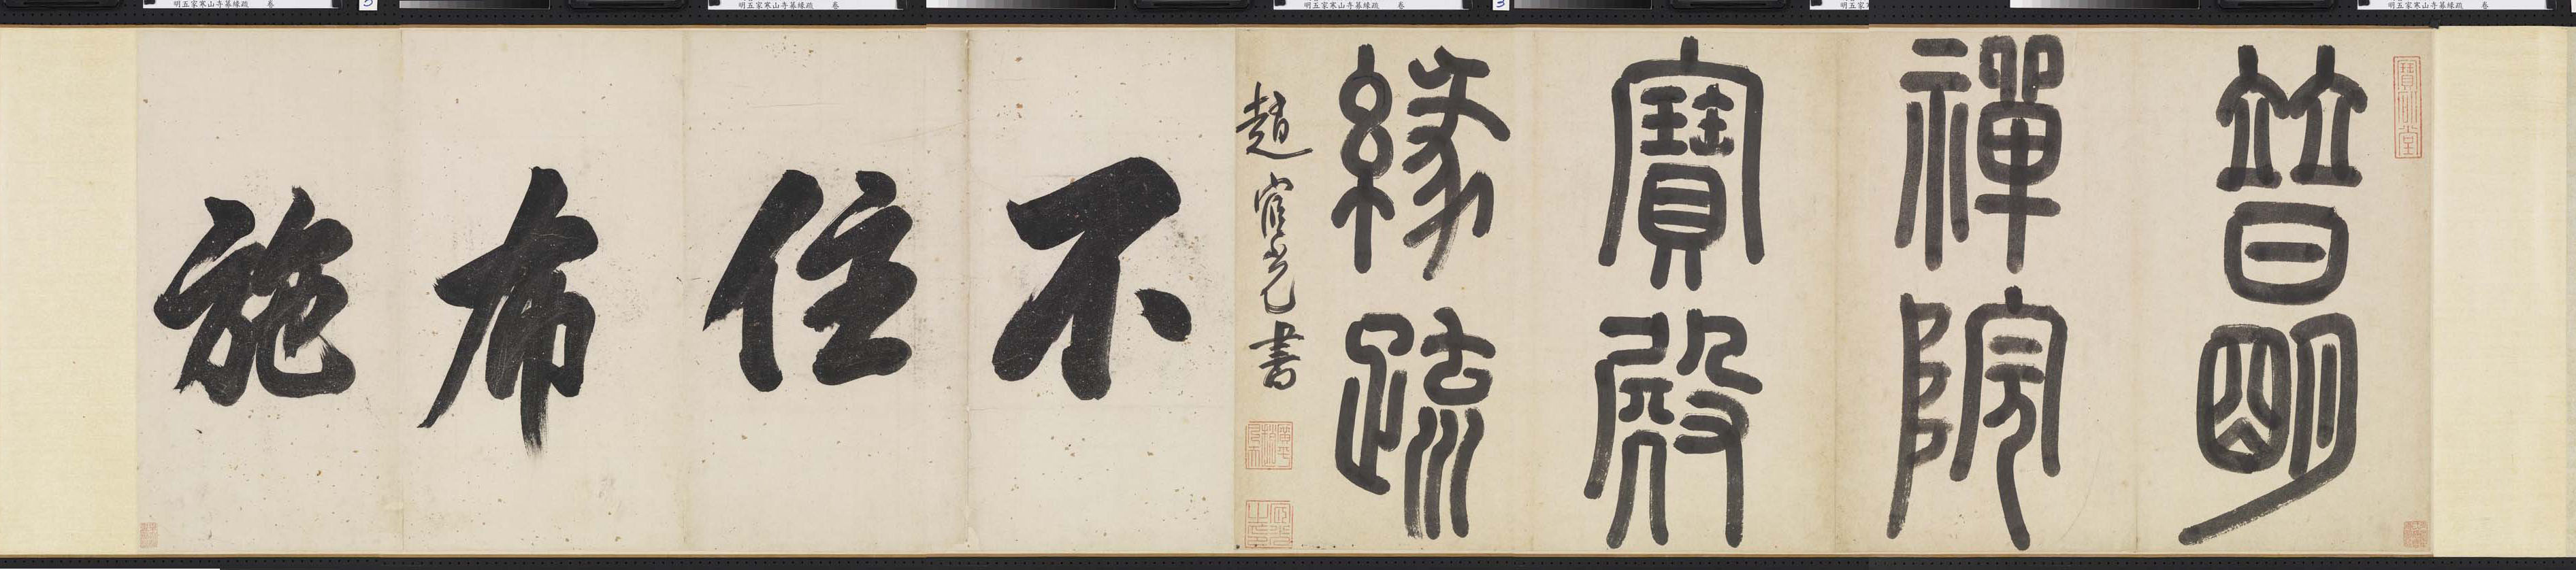 普明
禪院
寶殿
緣疏
趙宧光書
不
住
布
施
明五家寒山寺募緣疏 卷
明五家寒山寺募緣疏 卷
明五家寒山寺募緣疏 卷
明五家寒山寺募緣疏 卷